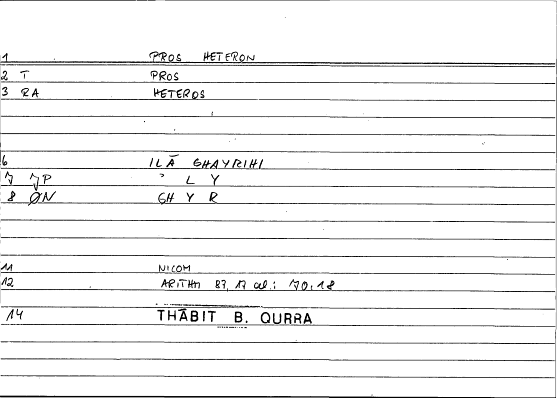 1 PROS HETERON
2 T PROS
3 RA HETEROS
6 ILĀ GHAYRIHI
7 JP ʾ L Y
8 ØN GH Y R
11 NICOM
12 ARITHM 83, 17 al.: 70,18
14 THĀBIT B. QURRA